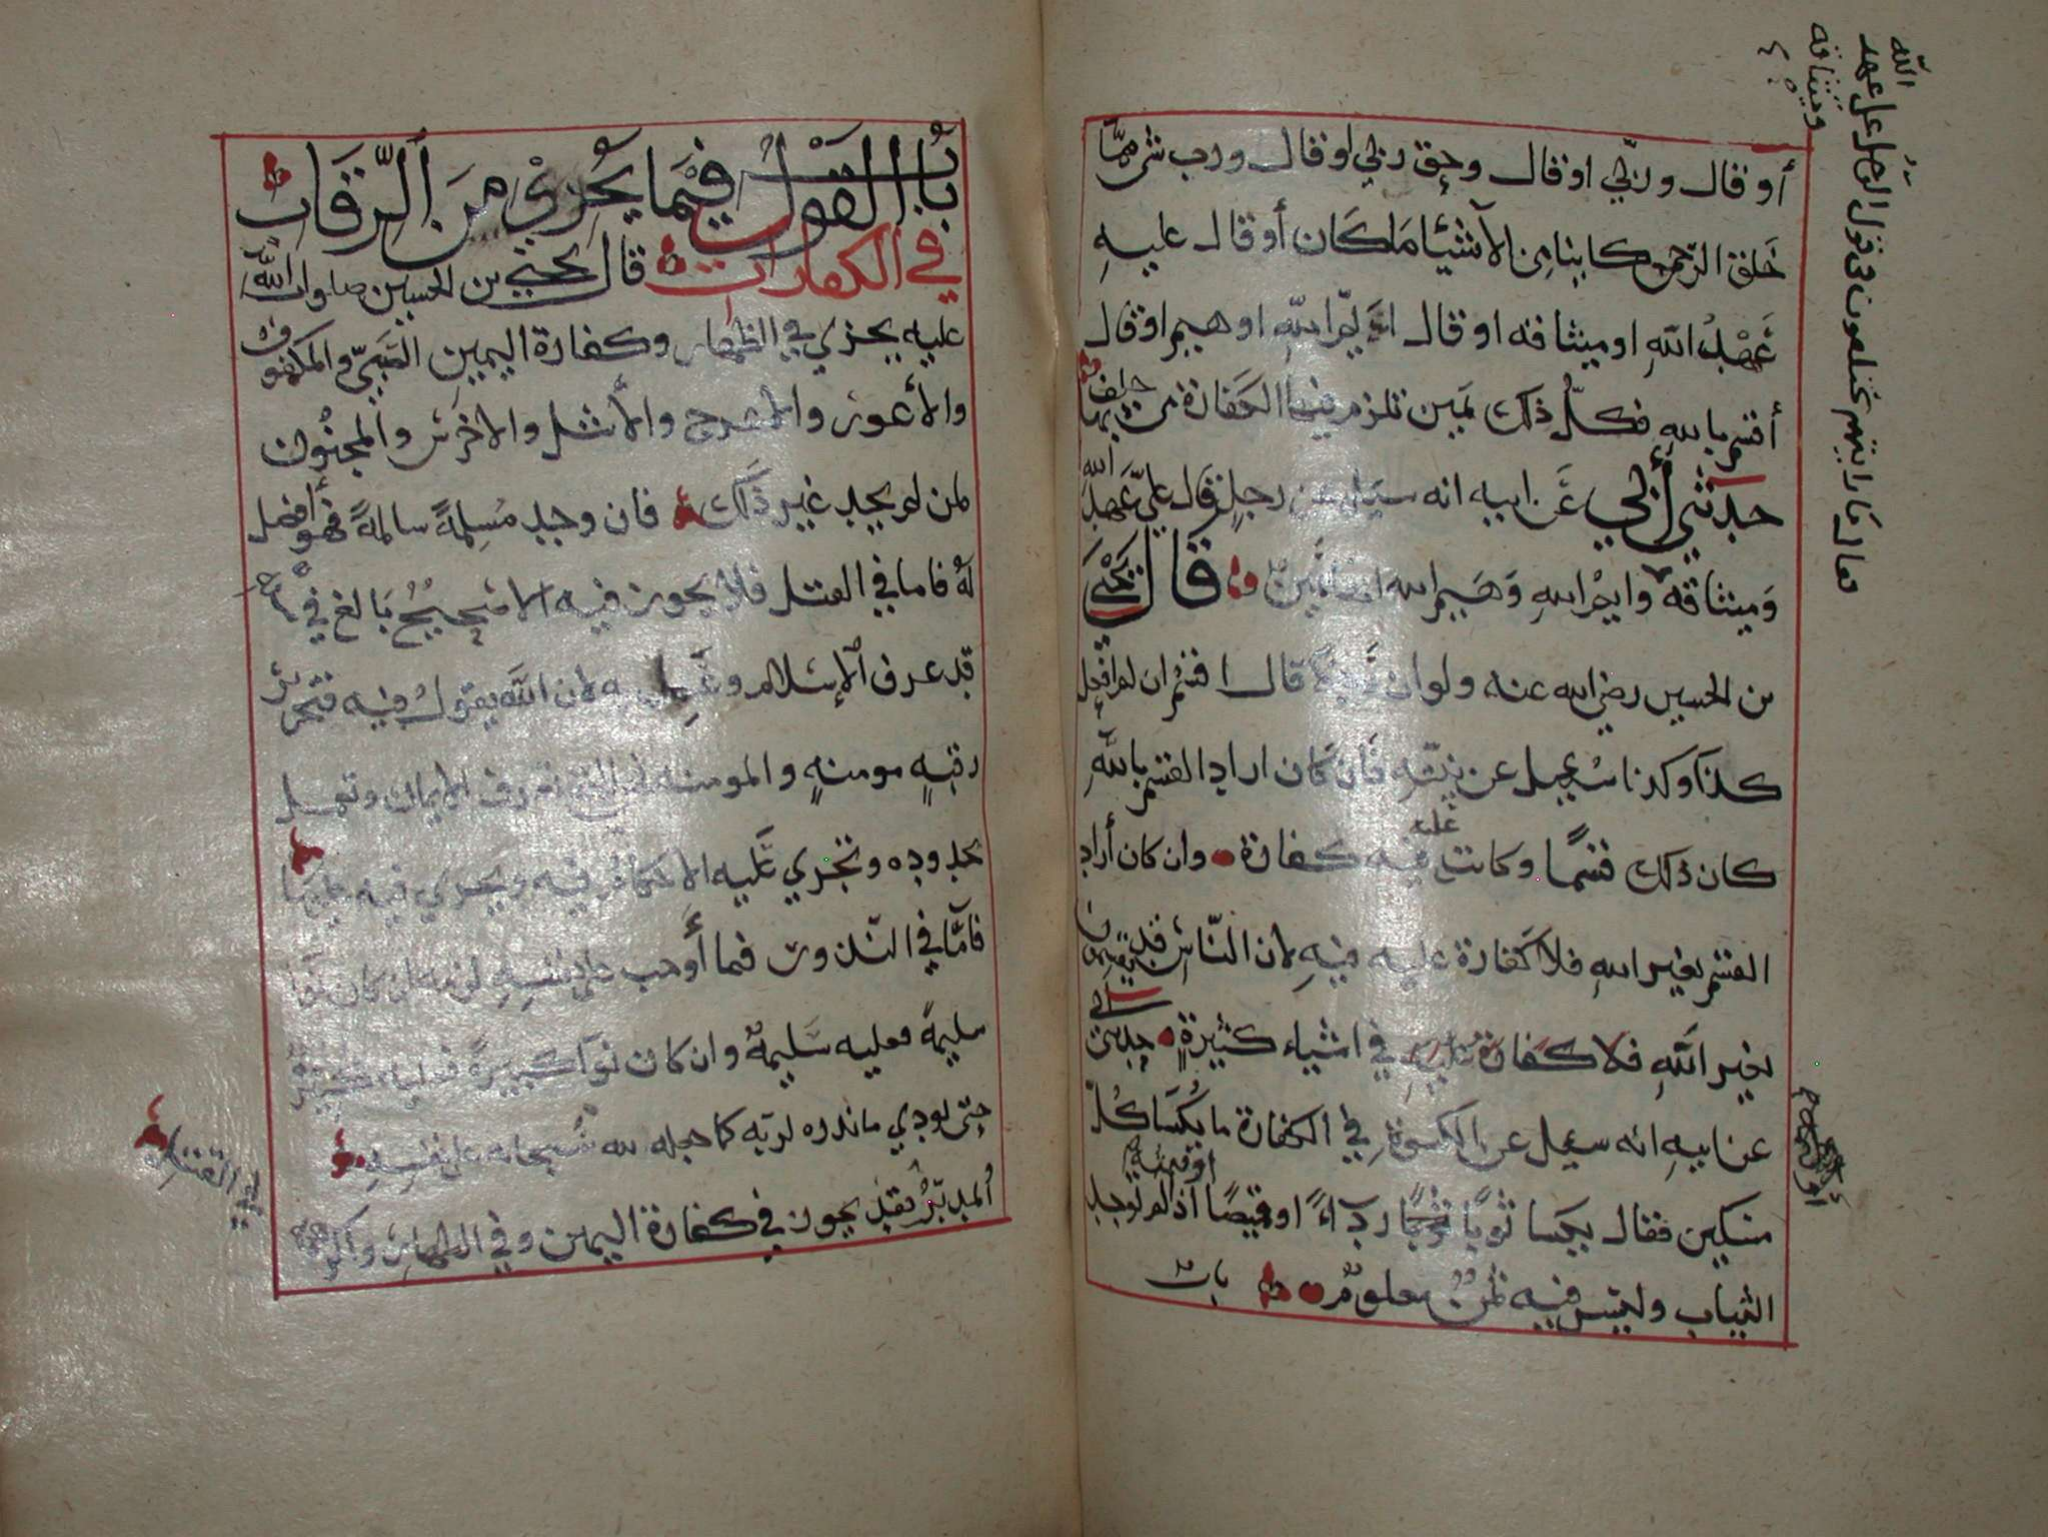 أو قال وربي او قال وحق ربي او قال ورب شي مما
خلق الرحمن كاينا من الأشيا ما كان أو قال عليه
عهد الله او ميثاقه او قال ايم الله او هيم او قال
أقسم بالله فكل ذلك يمين تلزم فيها الكفارة من حلف بها
حدثني أبي عن ابيه انه سئل عن رجل قال علي عهد الله
وميثاقه وايم الله وهيم الله قال يحيى
بن الحسين رضي الله عنه ولو ان قال اقسم ان لم افعل
كذا وكذا سئل عن نيته فان كان اراد القسم بالله
كان ذلك قسما وكانت عليه فيه كفارة وان كان أراد
القسم بغير الله فلا كفارة عليه فيه لان الناس قد يقسمون
بغير الله فلا كفارة عليهم في اشياء كثيرة حدثني ابي
عن ابيه انه سئل عن الكسوة في الكفارة ما يكسا كل
مسكين فقال يكسا ثوبا ثوبا رداء او قميصا اذا لم توجد
الثياب وليس فيه ثمن معلوم
باب
تعالى ما رايتهم يختلفون في قول الرجل علي عهد
الله
وميثاقه
باب القول فيما يجزي من الرقاب
في الكفارات قال يحيى بن الحسين صلوات الله
عليه يجزي في الظهار وكفارة اليمين الصبي والمكفوف
والأعور والأعرج والأشل والاخرس والمجنون
لمن لم يجد غير ذلك فان وجد مسلمة سالمة فهو أفضل
له فاما في القتل فلا يجوز فيه الا صحيح بالغ في
قد عرف الإسلام وعمل به لان الله يقول فيه فتحرير
رقبة مومنة والمومنة فهي التي تعرف الايمان وتعمل
بحدوده وتجري عليه الاحكام فيه ويجزي فيه
فأما في النذور فما أوجب على نفسه لزمه ان كان نوا
سليمة فعليه سليمة وان كان نوا كبيرة فعليه كبيرة
حتى يودي ما نذره لربه كما جعله لله سبحانه على نفسه
المدبر فقد يجوز في كفارة اليمين وفي الظهار
في القتل